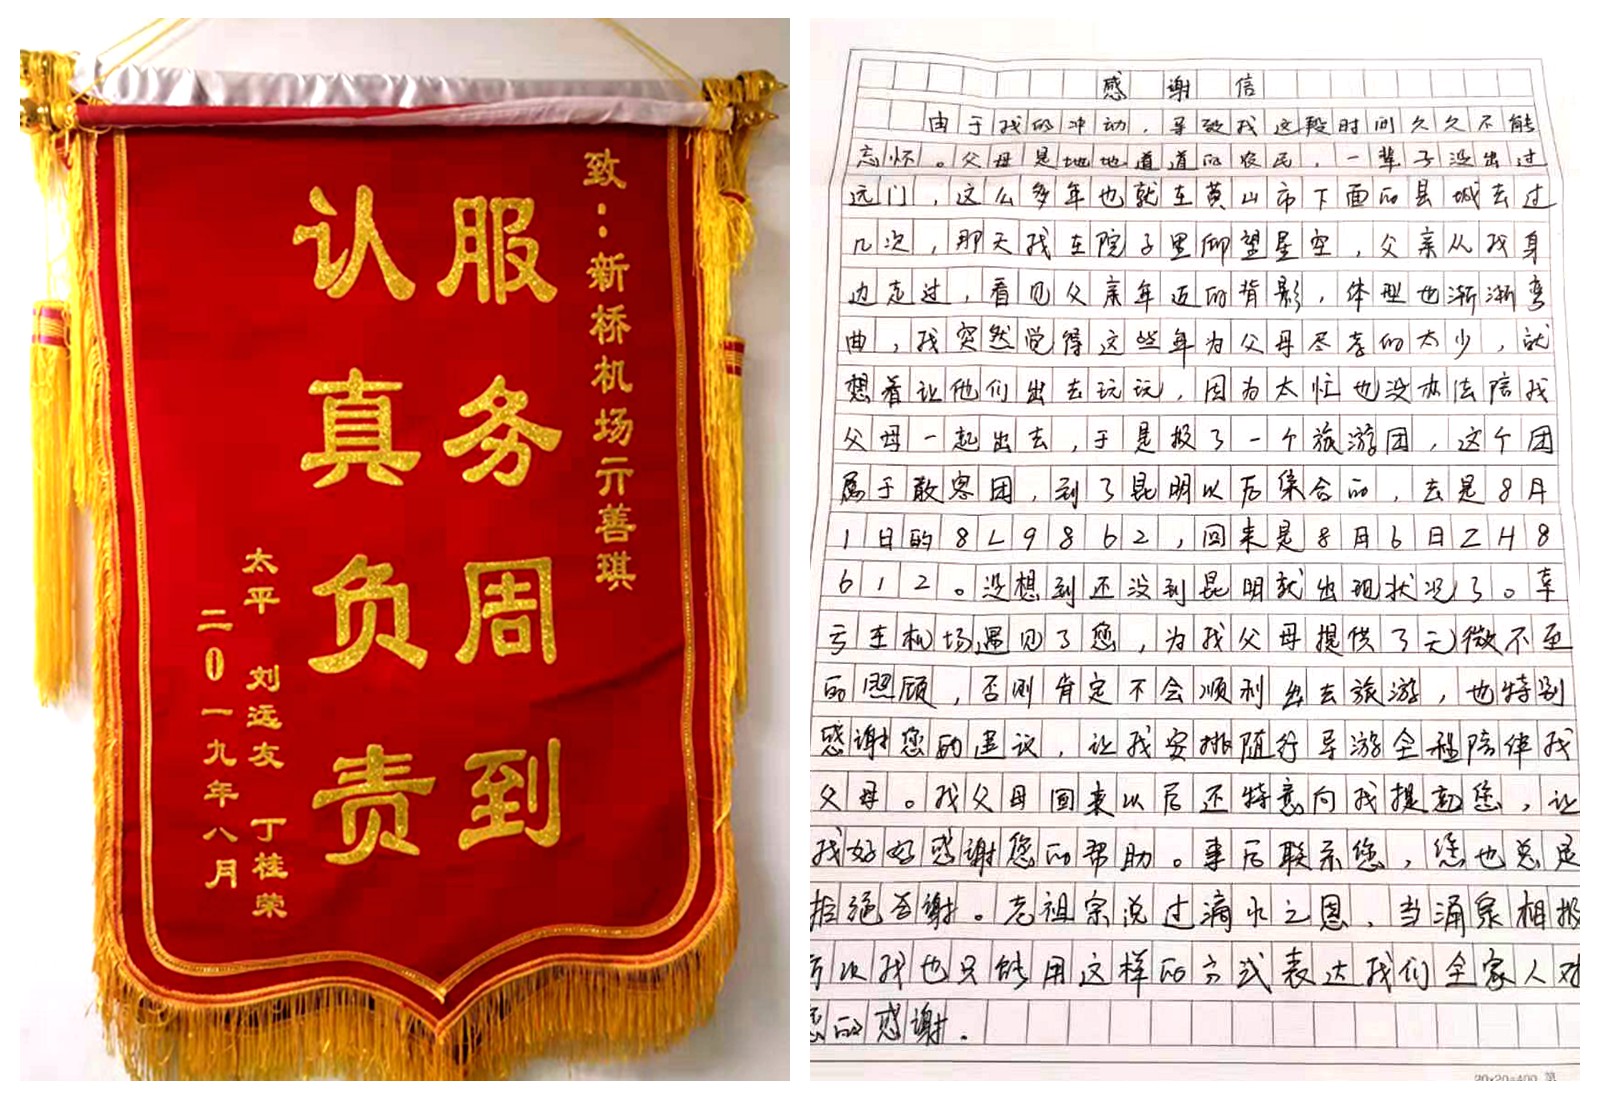 致：新桥机场亓善琪
服务周到
认真负责
太平 刘远友 丁桂荣
二0一九年八月
感谢信
由于我的冲动，导致我这段时间久久不能
忘怀。父母是地地道道的农民，一辈子没出过
远门，这么多年也就在黄山市下面的县城去过
几次，那天我在院子里仰望星空，父亲从我身
边走过，看见父亲年迈的背影，体型也渐渐弯
曲，我突然觉得这些年为父母尽孝的太少，就
想着让他们出去玩玩，因为太忙也没办法陪我
父母一起出去，于是报了一个旅游团，这个团
属于散客团，到了昆明以后集合的，去是8月
1日的8L9862，回来是8月6日ZH8
612。没想到还没到昆明就出现状况了。幸
亏在机场遇见了您，为我父母提供了无微不至
的照顾，否则肯定不会顺利出去旅游，也特别
感谢您的建议，让我安排随行导游全程陪伴我
父母。我父母回来以后还特意向我提起您，让
我好好感谢您的帮助。事后联系您，您也总是
拒绝答谢。老祖宗说过滴水之恩，当涌泉相报
所以我也只能用这样的方式表达我们全家人对
您的感谢。
20×20=400 第